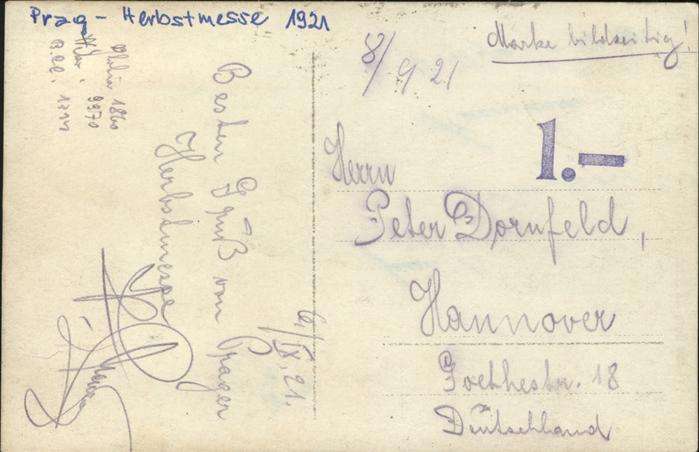 Prag - Herbstmesse 1921
Marke bildseitig!
8/9 21
1.-
Besten Gruß von Prager
Herbstmesse
6./IX. 21.
Herrn
Peter Dornfeld,
Hannover
Goethestr. 18
Deutschland